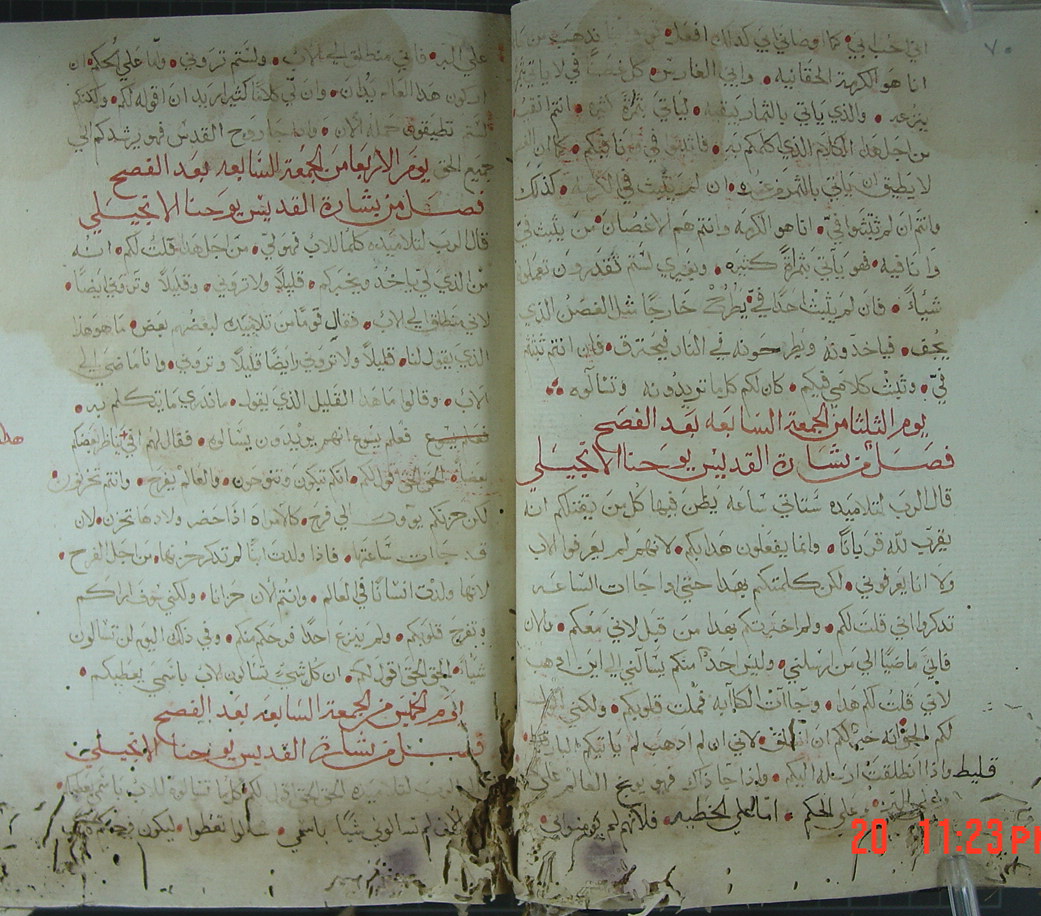 ٧٠
اني احب ابي • كما اوصاني ابي كذلك افعل •
انا هو الكرمة الحقانيه • وابي الغارس • كل غصن في لا ياتي بثمر
ينزعه • والذي ياتي بالثمار ينقيه • لياتي بثمرة اكثر • انتم انقيا
من اجل هذا الكلام الذي كلمتكم به • فاثبتوا في وانا فيكم • كما ان
لا يطيق ان ياتي بالثمر من عنده • ان لم يثبت في الكرمه • كذلك
وانتم ان لم تثبتوا في • انا هو الكرمه وانتم هم الاغصان • من يثبت في
وانا فيه • فهو ياتي بثمرة كثيره • وبغيري لستم تقدرون تعملون
شياً • فان لم يثبت احدا في • يطرح خارجا مثل الغصن الذي
يجف • فياخذونه ويطرحونه في النار فيحترق • فان انتم ثبتم
في • وثبت كلامي فيكم • كان لكم كلما تريدونه وتسالوه •
يوم الثلثا من الجمعة السابعه بعد الفصح
فصل من بشارة القديس يوحنا الانجيلي
قال الرب لتلاميذه ستاتي ساعه يظن فيها كل من يقتلكم انه
يقرب لله قربانا • وانما يفعلون هذا بكم • لانهم لم يعرفوا الاب
ولا انا يعرفوني • لكن كلمتكم بهذا حتى اذا جات الساعه
تذكروا اني قلت لكم • ولم اخبركم بهذا من قبل لاني معكم • والان
فاني ماضيا الى من ارسلني • وليس احدا منكم يسالني الى اين اذهب
لاني قلت لكم هذا • وجات الكابه فملت قلوبكم • ولكني
لكم الحق انه خير لكم ان انطلق • لاني ان لم اذهب لم ياتيكم البارقليط
قليط واذا انطلقت ارسله اليكم • واذا جا ذاك فهو يوبخ العالم على
وعلى الحكم • اما على الخطيه • فلانهم لم يومنوا بي
على البر • فاني منطلق الى الاب • ولستم تروني • واما على الحكم • ان
اركون هذا العالم يدان • وان لي كلاما كثيرا اريد ان اقوله لكم • ولكنكم
لستم تطيقون حمله الان • فاذا جا روح القدس فهو يرشدكم الى
جميع الحق • يوم الاربعا من الجمعة السابعه بعد الفصح
فصل من بشارة القديس يوحنا الانجيلي
قال الرب لتلاميذه كلما للاب فهو لي • من اجل هذا قلت لكم • انه
من الذي لي ياخذ ويخبركم • قليلا ولا تروني • وقليلا وتروني ايضا •
لاني منطلق الى الاب • فقال قوما من تلاميذه لبعضهم بعض • ما هو هذا
الذي يقول لنا • قليلا ولا تروني وايضا قليلا وتروني • وانا ماضي الى
الاب • وقالوا ما هذا القليل الذي يقول • ما ندري ما يتكلم به •
فعلم يسوع انهم يريدون يسالوه • فقال لهم افي هذا يناظر بعضكم
بعضا • الحق الحق اقول لكم • انكم تبكون وتنوحون • والعالم يفرح • وانتم تحزنون
لكن حزنكم يوول الى فرح • كالامراه اذا حضر ولادها تحزن • لان
قد جات ساعتها • فاذا ولدت ابنا لم تذكر حزنها • من اجل الفرح •
لانها ولدت انسانا في العالم • وانتم الان حزانا • ولكني سوف اراكم
وتفرح قلوبكم • ولم ينزع احدا فرحكم منكم • وفي ذلك اليوم لن تسالون
شياً • الحق الحق اقول لكم • ان كل شيء تسالون الاب باسمي يعطيكم •
يوم الخميس من الجمعة السابعه بعد الفصح
فصل من بشارة القديس يوحنا الانجيلي
قال الرب لتلاميذه الحق الحق اقول لكم كلما تسالوه للاب باسمي يعطيكم
لم تسالوني شيا باسمي • سالوا تعطوا • ليكون فرحكم
20 11:23 PM